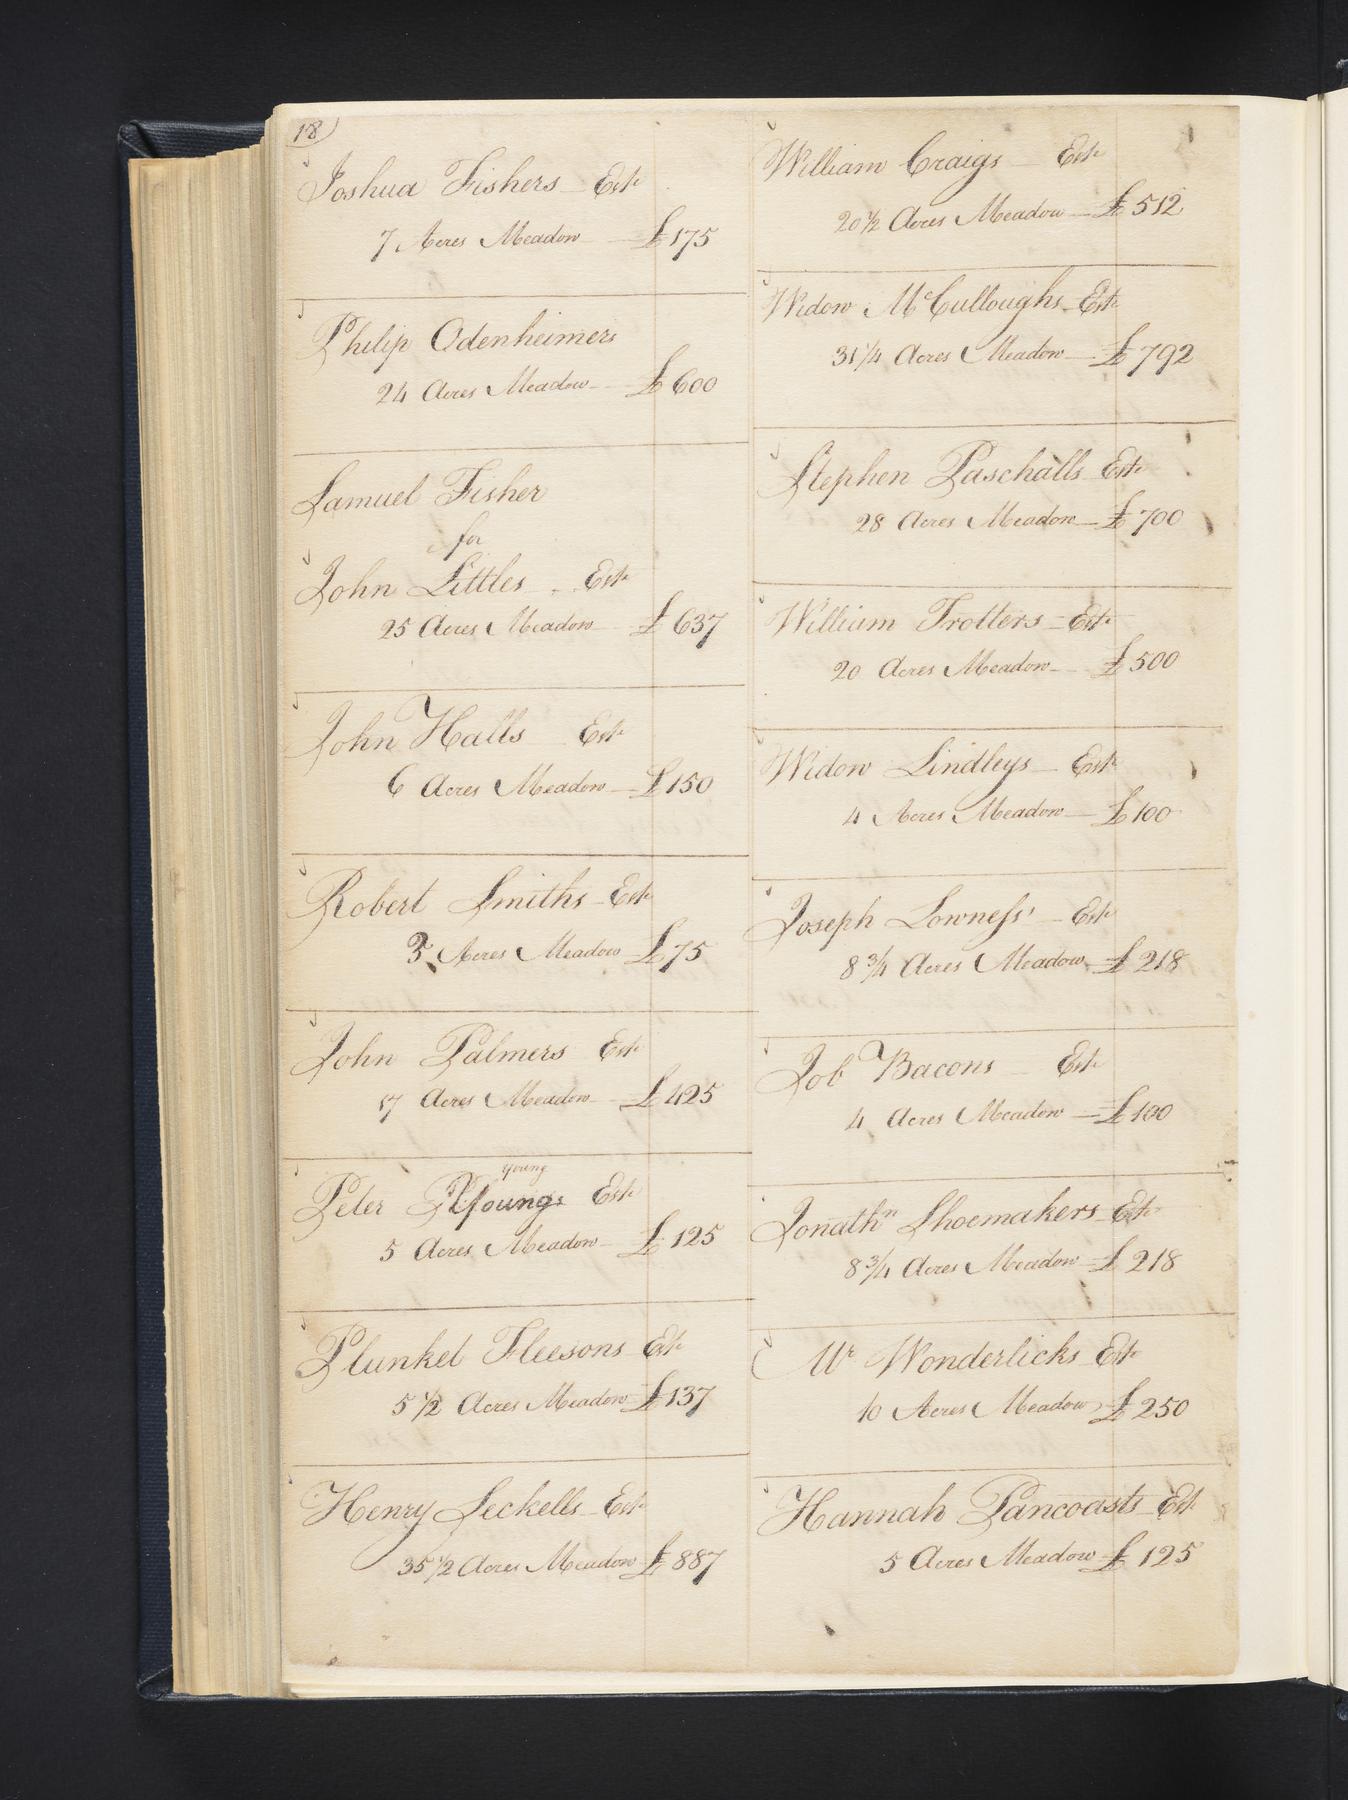 18
Joshua Fishers Est.
7 Acres Meadow £175
Philip Odenheimers
24 Acres Meadow £600
Samuel Fisher
for
John Littles Est.
25 Acres Meadow £637
John Halls Est.
6 Acres Meadow £150
Robert Smiths Est.
3 Acres Meadow £75
John Palmers Est.
17 Acres Meadow £425
young
Peter Youngs Est.
5 Acres Meadow £125
Plunket Fleesons Est.
5 1/2 Acres Meadow £137
Henry Seckells Est.
35 1/2 Acres Meadow £887
William Craigs Est.
20 1/2 Acres Meadow £512
Widow McCulloughs Est.
31 1/4 Acres Meadow £792
Stephen Paschalls Est.
28 Acres Meadow £700
William Trotters Est.
20 Acres Meadow £500
Widow Lindleys Est.
4 Acres Meadow £100
Joseph Lowness' Est.
8 3/4 Acres Meadow £218
Job Bacons Est.
4 Acres Meadow £100
Jonathn Shoemakers Est.
8 3/4 Acres Meadow £218
Mr Wonderlicks Est.
10 Acres Meadow £250
Hannah Pancoasts Est.
5 Acres Meadow £125